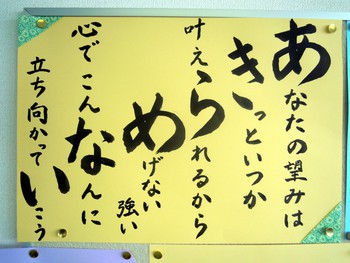 あなたの望みは
きっといつか
叶えられるから
めげない強い
心でこんなんに
立ち向かって
いこう